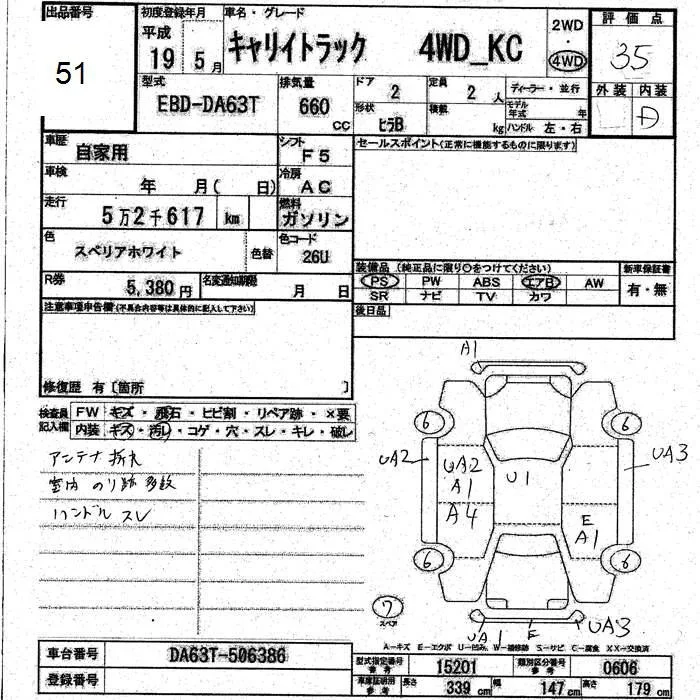 出品番号
51
初度登録年月
平成
19 5月
車名・グレード
キャリイトラック 4WD_KC
2WD
・
4WD
評価点
3.5
外装 内装
D
型式
EBD-DA63T
排気量
660 CC
ドア 2
定員 2 人
ディーラー・並行
形状 ヒラB
積数 kg
モデル年式 年
ハンドル 左・右
車歴 自家用
シフト F5
セールスポイント(正常に機能するものに限ります)
車検 年 月( 日)
冷房 AC
走行 5万2千617 km
燃料 ガソリン
色 スペリアホワイト 色替
色コード 26U
装備品(純正品に限り○をつけてください)
新車保証書
PS PW ABS エアB AW
有・無
SR ナビ TV カワ
R券 5,380円
名変通知期限 月 日
後日品
注意事項申告欄(不具合内容等は具体的に記入して下さい)
修復歴 有〔箇所 〕
検査員
記入欄
FW キズ・飛石・ヒビ割・リペア跡・×要
内装 キズ・汚レ・コゲ・穴・スレ・キレ・破レ
アンテナ 折れ
室内 のり跡 多数
ハンドル スレ
A1
6 6
UA2
UA2
A1
A4
U1
UA3
E
A1
6 6
7
スペア
UA1 E UA3
A=キズ E=エクボ U=凹み W=補修跡 S=サビ C=腐食 XX=交換済
車台番号 DA63T-506386
登録番号
型式指定番号
参考
15201
類別区分番号
参考
0606
車庫証明用
参考
長さ 339 cm
幅 147 cm
高さ 179 cm